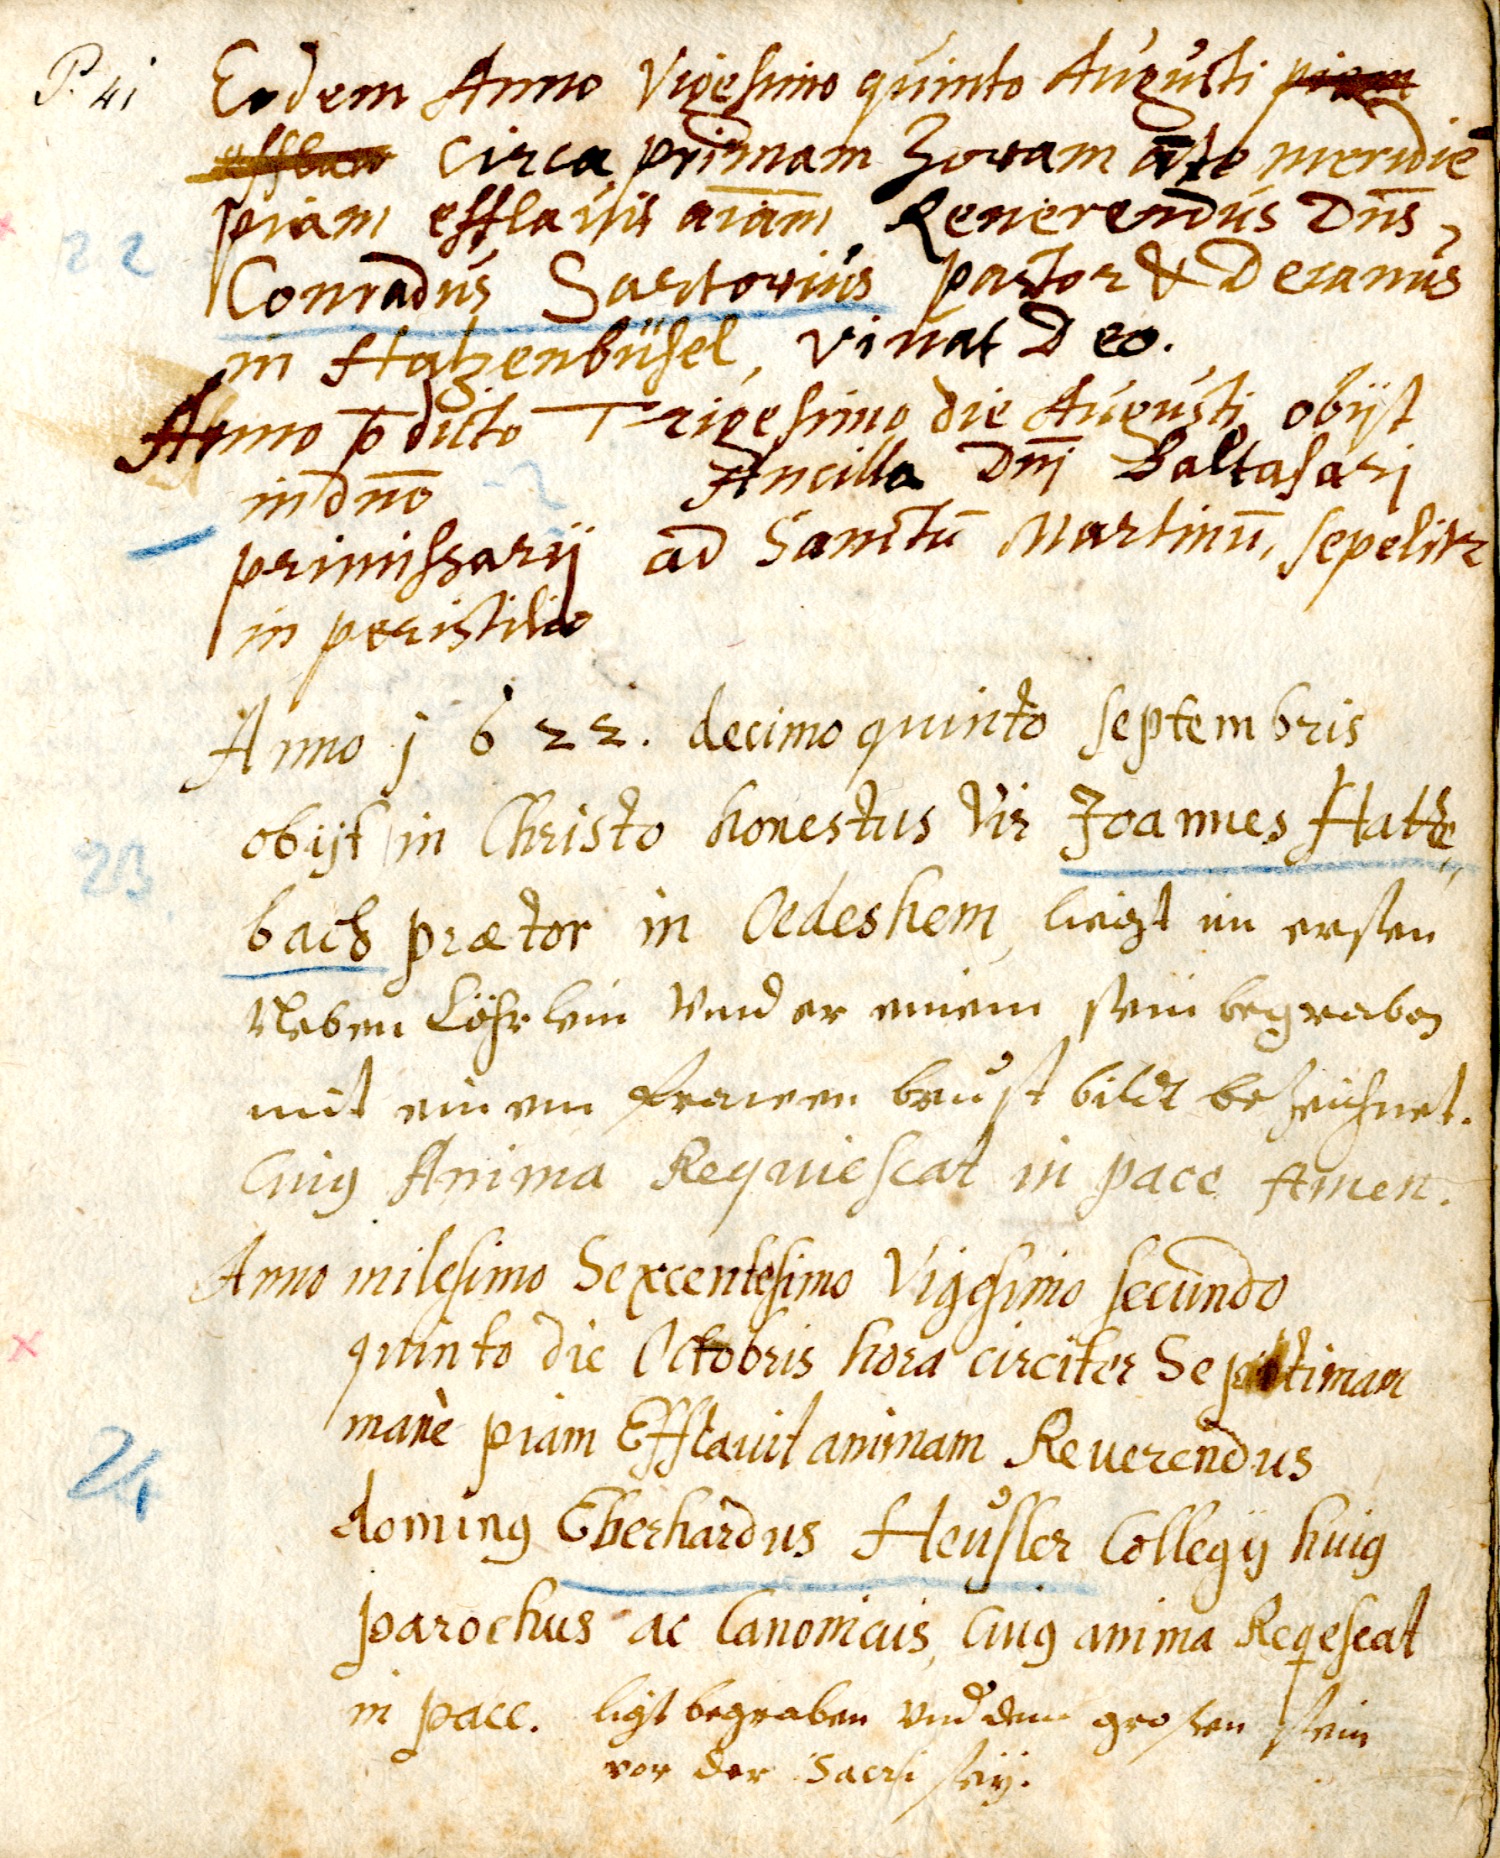 P. 41
Eodem Anno Vigesimo quinto Augusti piam
efflau circa primam horam āte meridiē
piam efflauit aīam Reuerendus Dn̄s
Conradus Sartorius pastor & Decanus
in Hatzenbüsel, viuat Deo.
Anno p̄dicto Trigesimo die Augusti obijt
in dn̄o Ancilla Dn̄j Baltasarj
primissarij ad Sanctū Martinū, sepelitr
in peristilio
22
Anno j622. decimo quinto septembris
obijt in Christo honestus Vir Joannes Hatze,
bach prætor in Oedeshem, liegt im ersten
Neben Cörlein Vnder einem stein begraben
mit einem frawen brust bildt bezeichnet.
Cuiꝰ Anima Requiescat in pace Amen.
23
Anno milesimo Sexcentesimo Vigesimo secundo
quinto die Octobris hora circiter Septimam
manè piam Efflauit animam Reuerendus
dominꝰ Eberhardus Heusler Collegij huiꝰ
parochus ac Canonicus, Cuiꝰ anima Reqescat
in pace. ligt begraben Vnd dem grossen stein
vor der Sacristeij.
24